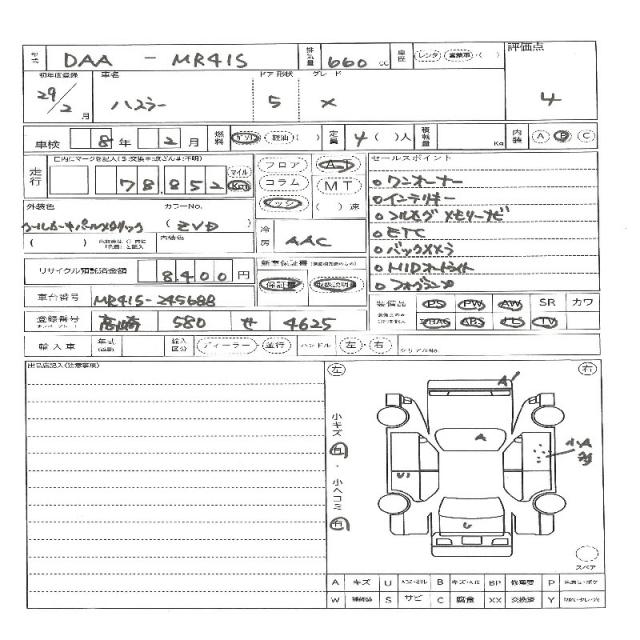 型式 DAA - MR41S 排気量 660 cc 車歴 レンタ 営業車 ( ) 評価点 4
初年度登録 29/2 月 車名 ハスラー ドア 形状 5 グレード X
車検 8 年 2 月 燃料 ガソリン (軽油)( ) 定員 4 ( )人 積載量 Kg 内装 A B C
走行 78,852 マイル Km
フロア AT
コラム MT
( )速
外装色 カラーNo. (ZVD)
( ) 内装色
冷房 AAC
リサイクル預託済金額 8,400 円
新車保証書
保証書 取扱説明書
セールスポイント
○ワンオーナー
○インテリキー
○フルセグ メモリーナビ
○ETC
○バックカメラ
○HIDオートライト
○フォグランプ
車台番号 MR41S-245688
装備品 PS PW AW SR カワ
ABS TV
登録番号 高崎 580 せ 4625
輸入車 年式 輸入区分 ディーラー 並行 ハンドル 左 ・ 右 シリアルNo.
出品店記入(注意事項)
左 右
小キズ 有 ・ 小ヘコミ 有
A
A
U1
小A
G
スペア
A キズ U B BP P
W S サビ C 腐食 XX 交換済 Y